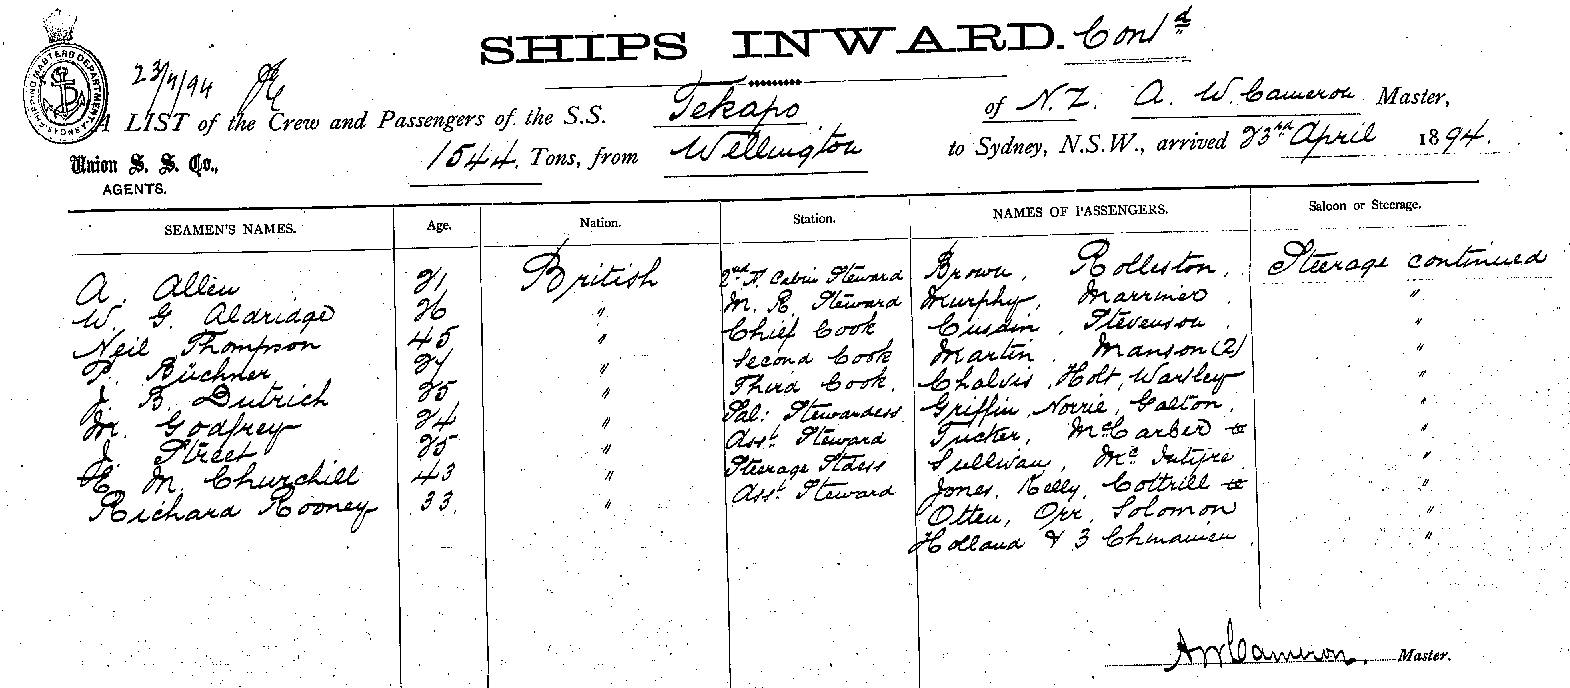 SHIPS INWARD. Cont^d
23/4/94
A LIST of the Crew and Passengers of the S.S. Tekapo of N.Z. A. W. Cameron Master,
Union S. S. Co., 1544 Tons, from Wellington to Sydney, N.S.W., arrived 23rd April 1894.
AGENTS.
SEAMEN'S NAMES. Age. Nation. Station. NAMES OF PASSENGERS. Saloon or Steerage.
A. Allen 21 British 2nd Cabin Steward Brown, Rolleston, Steerage continued
W. G. Aldridge 26 " M. R. Steward Murphy, Marriner "
Neil Thompson 45 " Chief Cook Cusdin, Stevenson "
P. Büchner 27 " Second Cook Martin, Manson (2) "
J. B. Dutrich 25 " Third Cook. Chalvis, Holt, Warsley "
M. Godfrey 24 " Sal: Stewardess Griffin, Norrie, Galton, "
J. Street 25 " Asst. Steward Tucker, McCarber "
E. M. Churchill 43 " Steerage Stdess Sullivan, McIntyre "
Richard Rooney 33. " Asst. Steward Jones, Kelly, Cottrill "
Otten, Orr, Solomon "
Holland & 3 Chinamen "
AWCameron. Master.